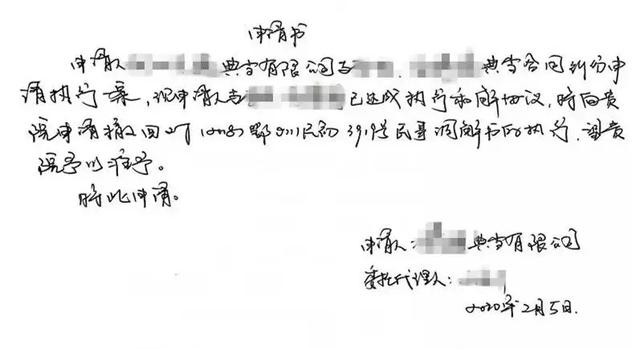 申请书
申请人 典当有限公司与 、 典当合同纠纷申
请执行案，现申请人与 已达成执行和解协议，特向贵
院申请撤回对 鄂 民初3919号民事调解书的执行，望贵
院予以准予。
特此申请。
申请人： 典当有限公司
委托代理人：
2020年2月5日.